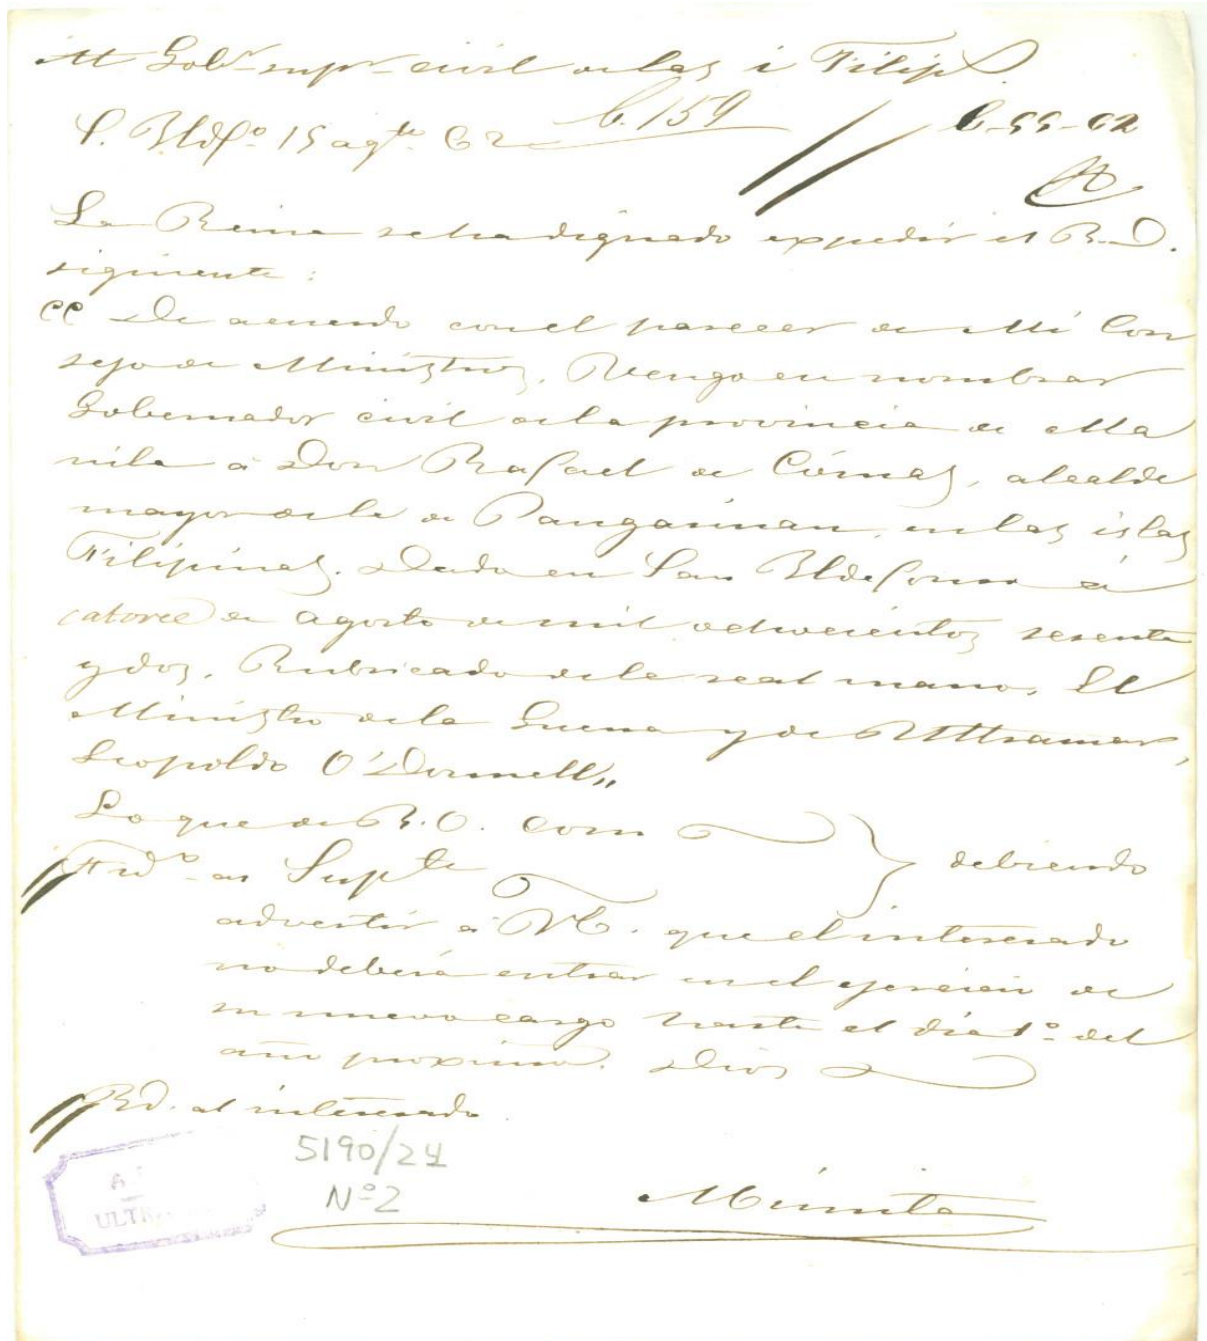 Al Gobr supr civil de las i Filips
S. Yldfo. 15 agto. 62 b. 159
La Reina se ha dignado expedir el R. D.
siguiente:
"De acuerdo con el parecer de Mi Con
sejo de Ministros, Vengo en nombrar
Gobernador civil de la provincia de Ma
nila á Don Rafael de Cómas, alcalde
mayor de la de Pangasinan, en las islas
Filipinas. Dado en San Yldefonso á
catorce de agosto de mil ochocientos sesenta
y dos. Rubricado de la real mano. El
Ministro de la Guerra y de Ultramar,
Leopoldo O'Donnell"
Lo que de R. O. com
debiendo
advertir á V.E. que el interesado
no deberá entrar en el ejercicio de
su nuevo cargo hasta el dia 1º del
año proximo. Dios
Yd. al interesado
5190/24
Nº 2
Minuta